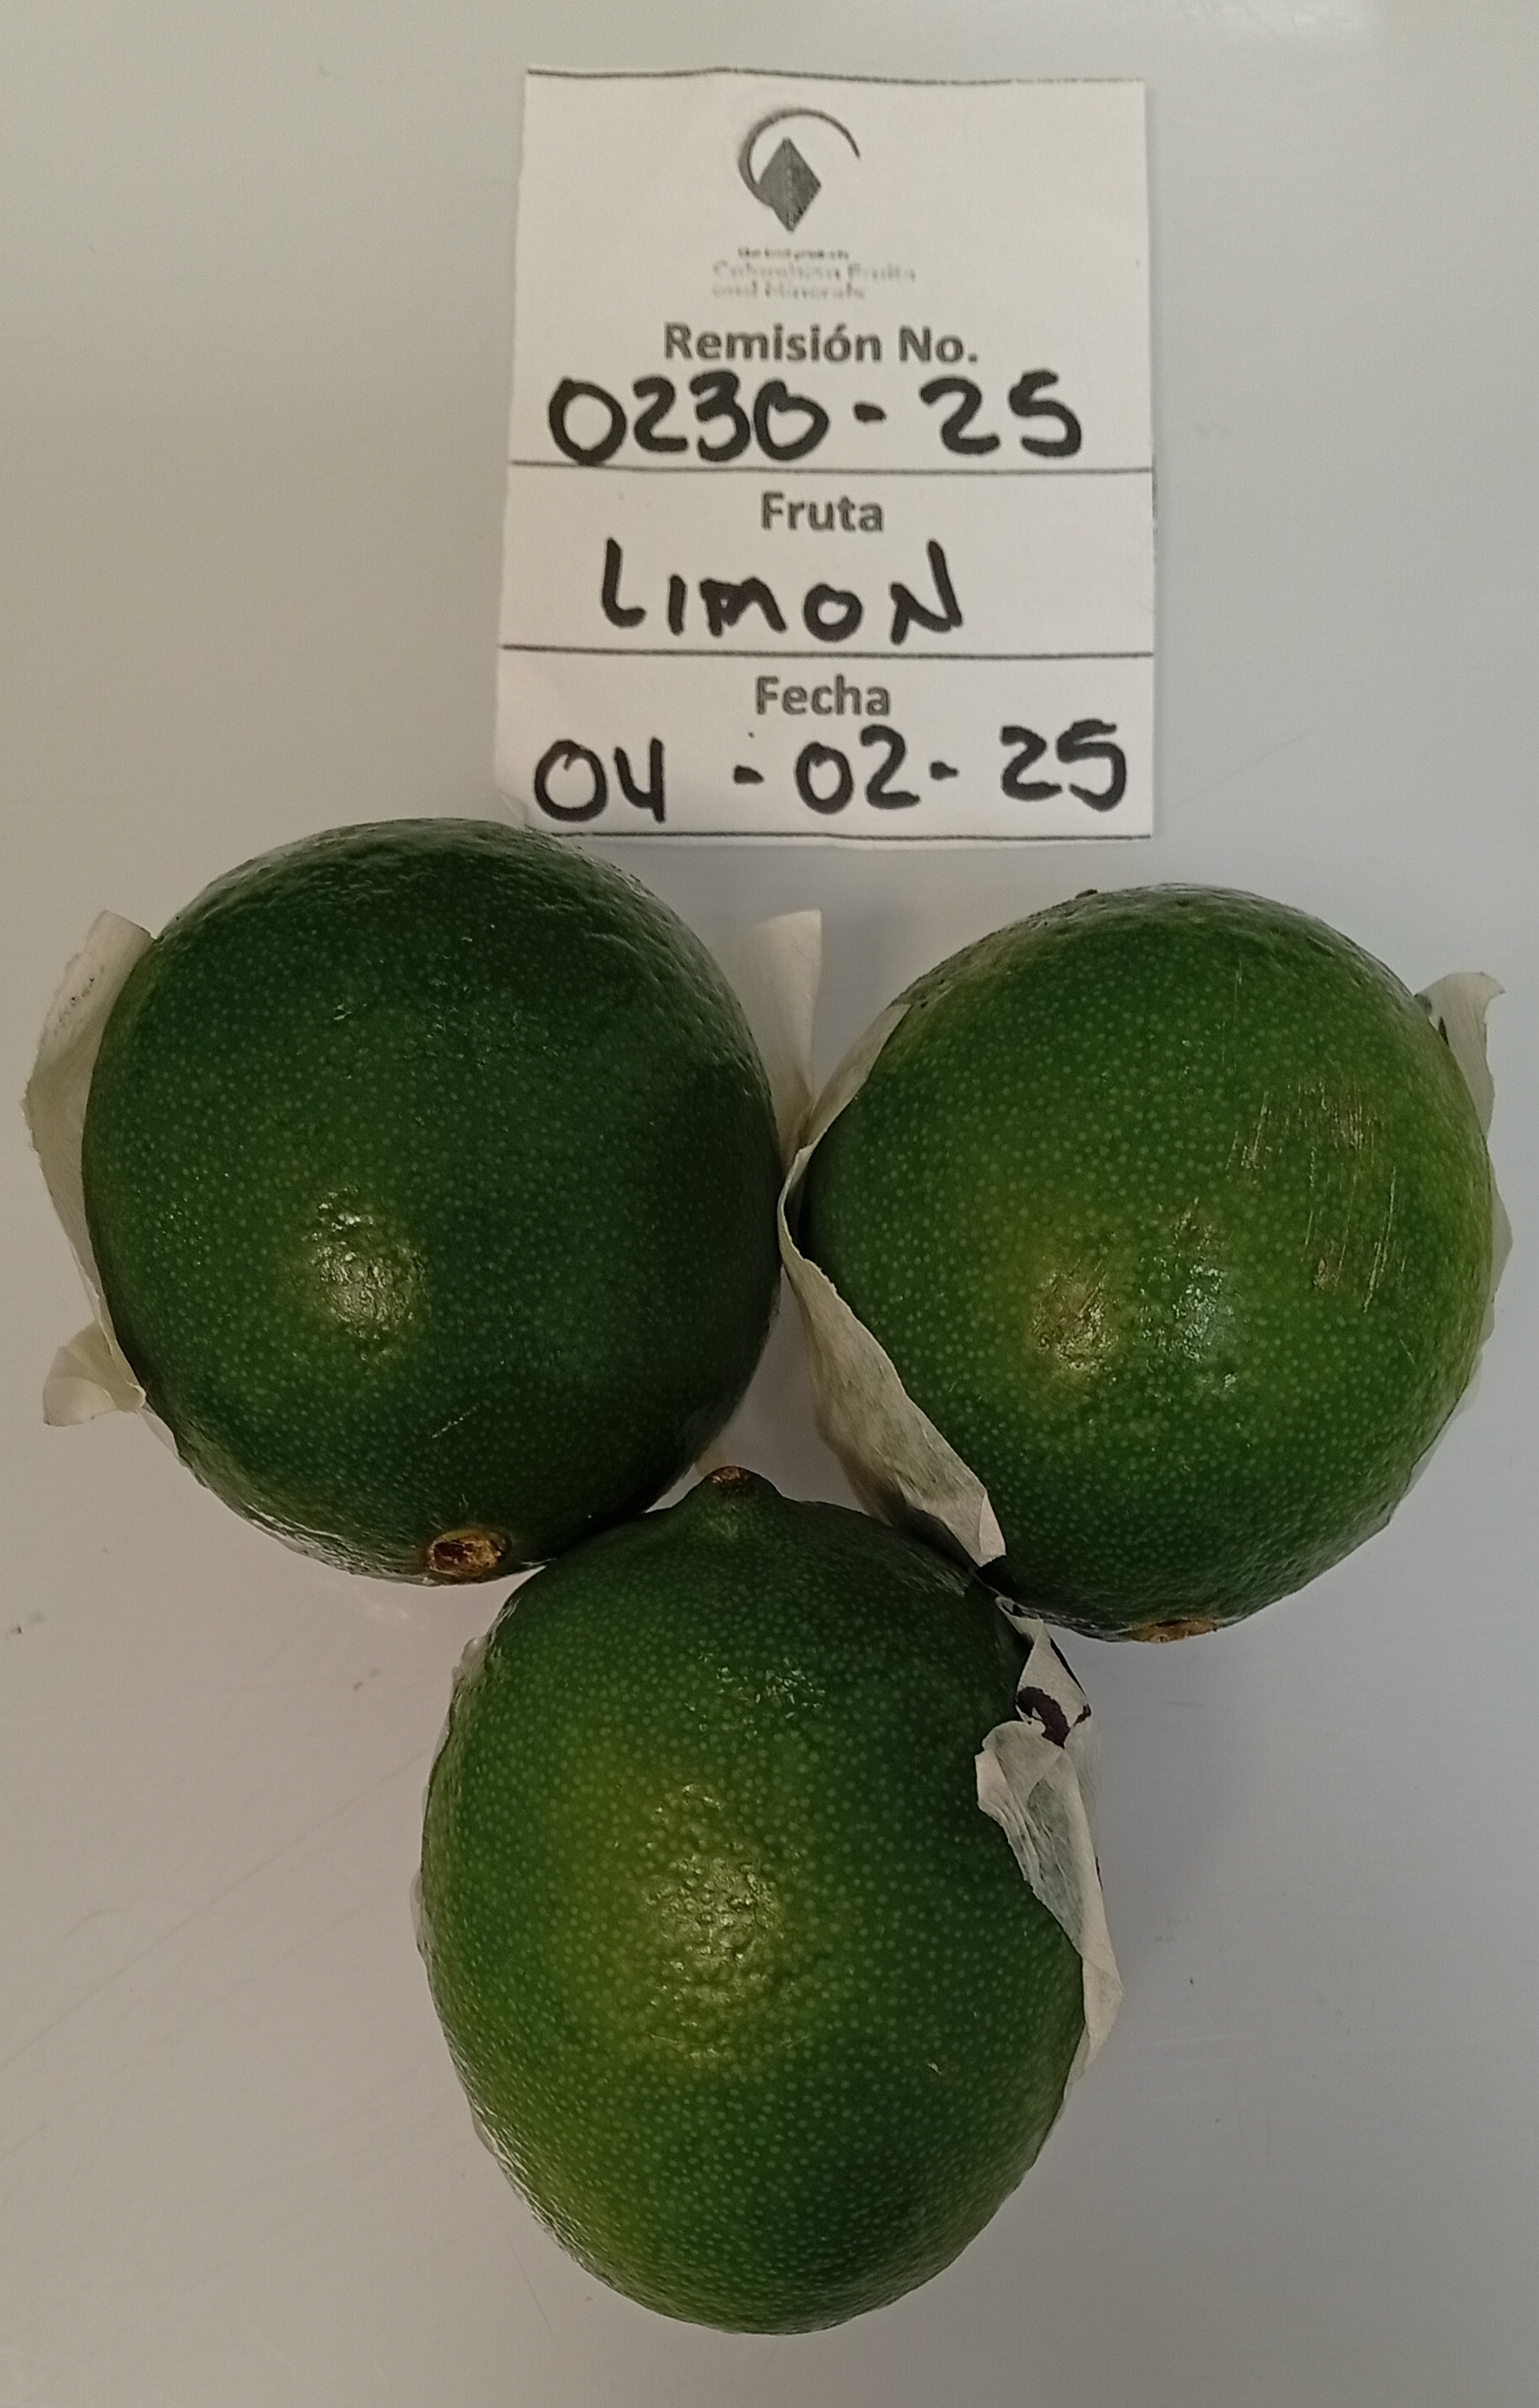 Colombian Fruits
and Minerals
Remisión No.
0230-25
Fruta
LIMON
Fecha
04-02-25